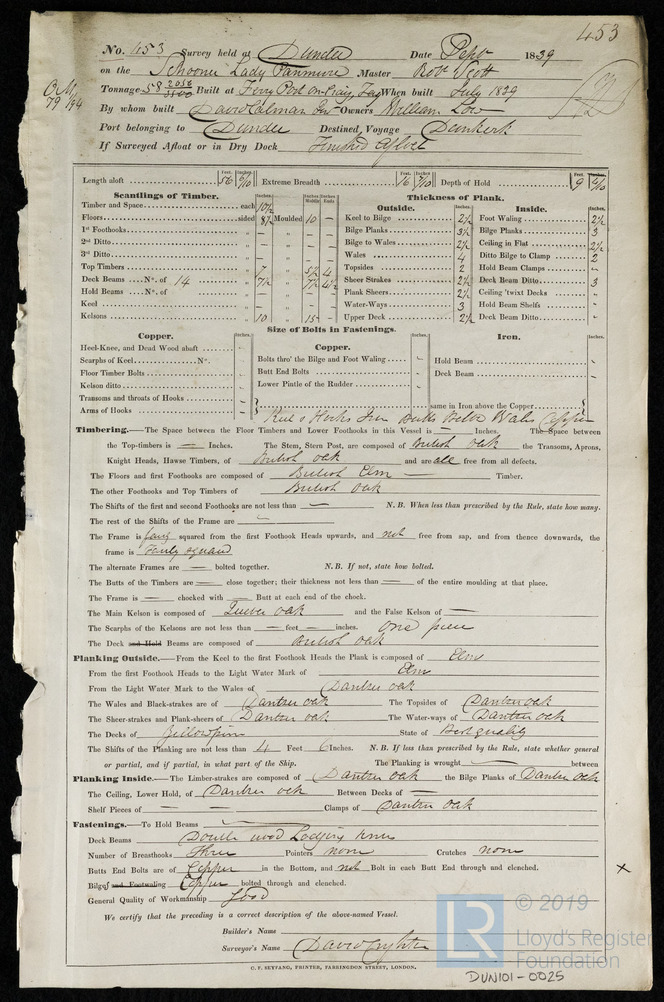 453
No. 453 Survey held at Dundee Date Septr 1839
on the Schooner Lady Panmure Master Robt Scott
Tonnage 58 2056/3500 Built at Ferry Port on Craig, Fay When built July 1839
79/94
By whom built David Calman Owners William Low
Port belonging to Dundee Destined Voyage Dunkerk
If Surveyed Afloat or in Dry Dock Finished Afloat
Length aloft 56 6/10 Extreme Breadth 16 7/10 Depth of Hold 9 6/10
Scantlings of Timber.
Timber and Space each 10½
Floors sided 8½ Moulded 10
1st Foothooks " – " –
2nd Ditto " – " –
3rd Ditto " – " –
Top Timbers " 7 " 5½ 4
Deck Beams No. of 14 " 7½ " 7½ 4½
Hold Beams No. of
Keel
Kelsons " 10 " 15
Thickness of Plank.
Outside. Inside.
Keel to Bilge 2½ Foot Waling 2½
Bilge Planks 3½ Bilge Planks 3
Bilge to Wales 2½ Ceiling in Flat 2½
Wales 4 Ditto Bilge to Clamp 2
Topsides 2 Hold Beam Clamps -
Sheer Strakes 2½ Deck Beam Ditto 3
Plank Sheers 2½ Ceiling 'twixt Decks -
Water-Ways 3 Hold Beam Shelfs -
Upper Deck 2½ Deck Beam Ditto -
Size of Bolts in Fastenings.
Copper.
Heel-Knee, and Dead Wood abaft
Scarphs of Keel No.
Floor Timber Bolts
Kelson ditto
Transoms and throats of Hooks
Arms of Hooks
Copper.
Bolts thro' the Bilge and Foot Waling
Butt End Bolts
Lower Pintle of the Rudder
Iron.
Hold Beam
Deck Beam
same in Iron above the Copper
Keel & Hooks Iron Butts Below Wales Copper
Timbering.—The Space between the Floor Timbers and Lower Foothooks in this Vessel is — Inches. The Space between
the Top-timbers is — Inches. The Stem, Stern Post, are composed of British oak the Transoms, Aprons,
Knight Heads, Hawse Timbers, of British oak and are all free from all defects.
The Floors and first Foothooks are composed of British Elm Timber.
The other Foothooks and Top Timbers of British oak
The Shifts of the first and second Foothooks are not less than — N.B. When less than prescribed by the Rule, state how many.
The rest of the Shifts of the Frame are
The Frame is fairly squared from the first Foothook Heads upwards, and not free from sap, and from thence downwards, the
frame is Fairly squared
The alternate Frames are — bolted together. N.B. If not, state how bolted.
The Butts of the Timbers are — close together; their thickness not less than — of the entire moulding at that place.
The Frame is — chocked with — Butt at each end of the chock.
The Main Kelson is composed of Quebec oak and the False Kelson of —
The Scarphs of the Kelsons are not less than — feet — inches. One piece
The Deck and Hold Beams are composed of British oak
Planking Outside.—From the Keel to the first Foothook Heads the Plank is composed of Elm
From the first Foothook Heads to the Light Water Mark of Elm
From the Light Water Mark to the Wales of Dantzic oak
The Wales and Black-strakes are of Dantzic oak The Topsides of Dantzic oak
The Sheer-strakes and Plank-sheers of Dantzic oak The Water-ways of Dantzic oak
The Decks of Yellow pine State of Best quality
The Shifts of the Planking are not less than 4 Feet 6 Inches. N.B. If less than prescribed by the Rule, state whether general
or partial, and if partial, in what part of the Ship. The Planking is wrought — between
Planking Inside.—The Limber-strakes are composed of Dantzic oak the Bilge Planks of Dantzic oak
The Ceiling, Lower Hold, of Dantzic oak Between Decks of —
Shelf Pieces of — — Clamps of Dantzic oak
Fastenings.—To Hold Beams
Deck Beams Double wood Lodging knees
Number of Breasthooks Three Pointers none Crutches none
Butts End Bolts are of Copper in the Bottom, and not Bolt in each Butt End through and clenched.
Bilges and Footwaling Copper bolted through and clenched.
General Quality of Workmanship good
We certify that the preceding is a correct description of the above-named Vessel.
Builder's Name
Surveyor's Name David Crighton
C. F. SEYFANG, PRINTER, FARRINGDON STREET, LONDON.
LR © 2019
Lloyd's Register
Foundation
DUN101-0025